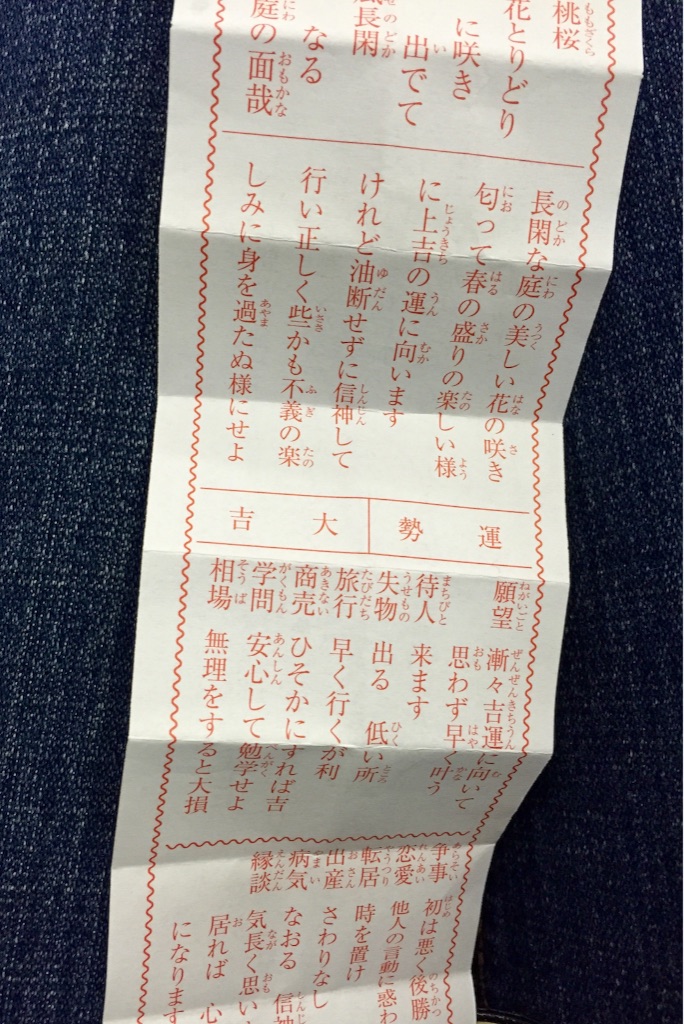 桃桜
花とりどり
に咲き
出でて
風長閑
なる
庭の面哉
長閑な庭の美しい花の咲き
匂って春の盛りの楽しい様
に上吉の運に向います
けれど油断せずに信神して
行い正しく些かも不義の楽
しみに身を過たぬ様にせよ
運勢
大吉
願望 漸々吉運に向いて
思わず早く叶う
待人 来ます
失物 出る 低い所
旅行 早く行くが利
商売 ひそかにすれば吉
学問 安心して勉学せよ
相場 無理をすると大損
争事 初は悪く後勝
恋愛 他人の言動に惑わ
転居 時を置け
出産 さわりなし
病気 なおる 信神
縁談 気長く思い
居れば 心
になります